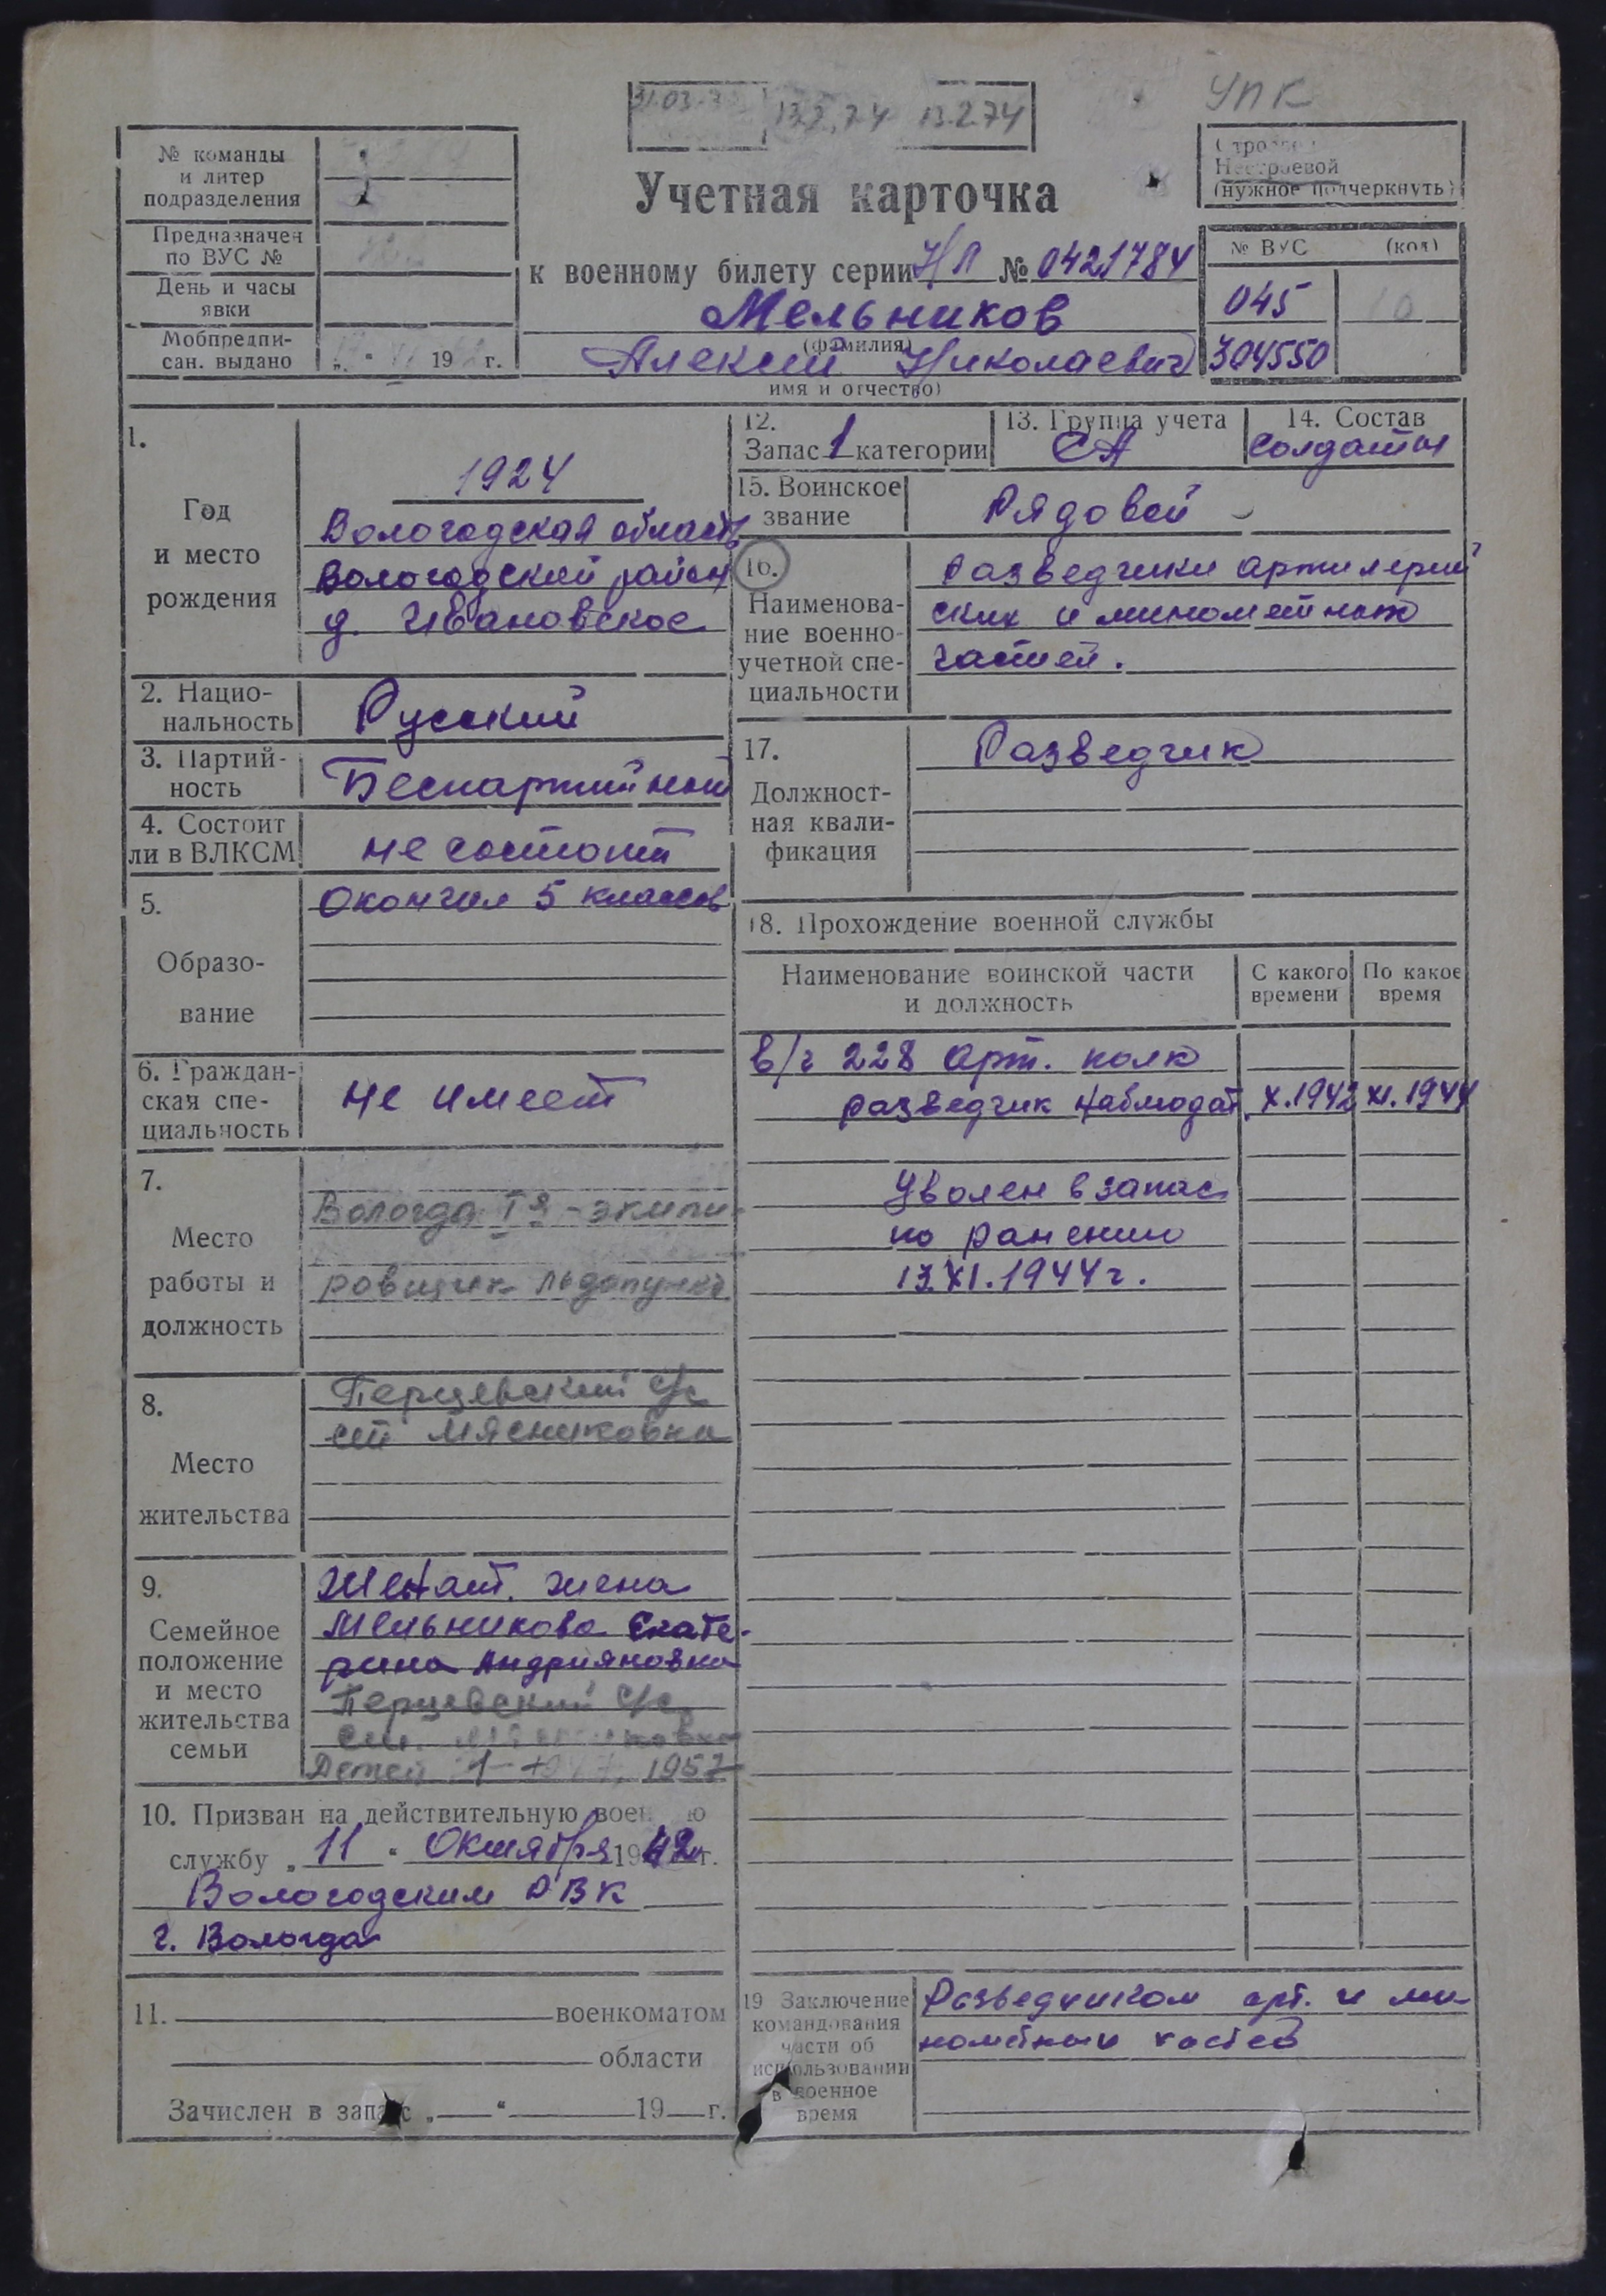 УПК
13.2.74 13.2.74
№ команды
и литер
подразделения
Предназначен
по ВУС №
День и часы
явки
Мобпредпи-
сан. выдано
19 г.
Учетная карточка
к военному билету серии НЛ № 0421784
Мельников
(фамилия)
Алексей Николаевич
имя и отчество)
Строевой
Нестроевой
(нужное подчеркнуть)
№ ВУС (код)
045 10
304550
1.
Год
и место
рождения
1924
Вологодская область
Вологодский район
д. Ивановское
2. Нацио-
нальность
Русский
3. Партий-
ность
Беспартийный
4. Состоит
ли в ВЛКСМ
не состоит
5.
Образо-
вание
Окончил 5 классов
6. Граждан-
ская спе-
циальность
не имеет
7.
Место
работы и
должность
Вологда Iя - экипи-
ровщик льдопункт
8.
Место
жительства
Перцевский с/с
ст Мясниковка
9.
Семейное
положение
и место
жительства
семьи
Женат. жена
Мельникова Екате-
рина Андрияновна
Перцевский с/с
Детей 1 1957
10. Призван на действительную военную
службу „11“ Октября 1942 г.
Вологодским РВК
г. Вологда
11. военкоматом
области
Зачислен в запас „ “ 19 г.
12.
Запас 1 категории
13. Группа учета
СА
14. Состав
солдаты
15. Воинское
звание
Рядовой
16.
Наименова-
ние военно-
учетной спе-
циальности
Разведчики артилерий
ских и минометных
частей.
17.
Должност-
ная квали-
фикация
Разведчик
18. Прохождение военной службы
Наименование воинской части
и должность
С какого
времени
По какое
время
в/ч 228 арт. полк
разведчик наблюдат. X.1942 XI.1944
Уволен в запас
по ранению
13.XI.1944г.
19 Заключение
командования
части об
использовании
в военное
время
Разведчиком арт. и ми-
нометных частей